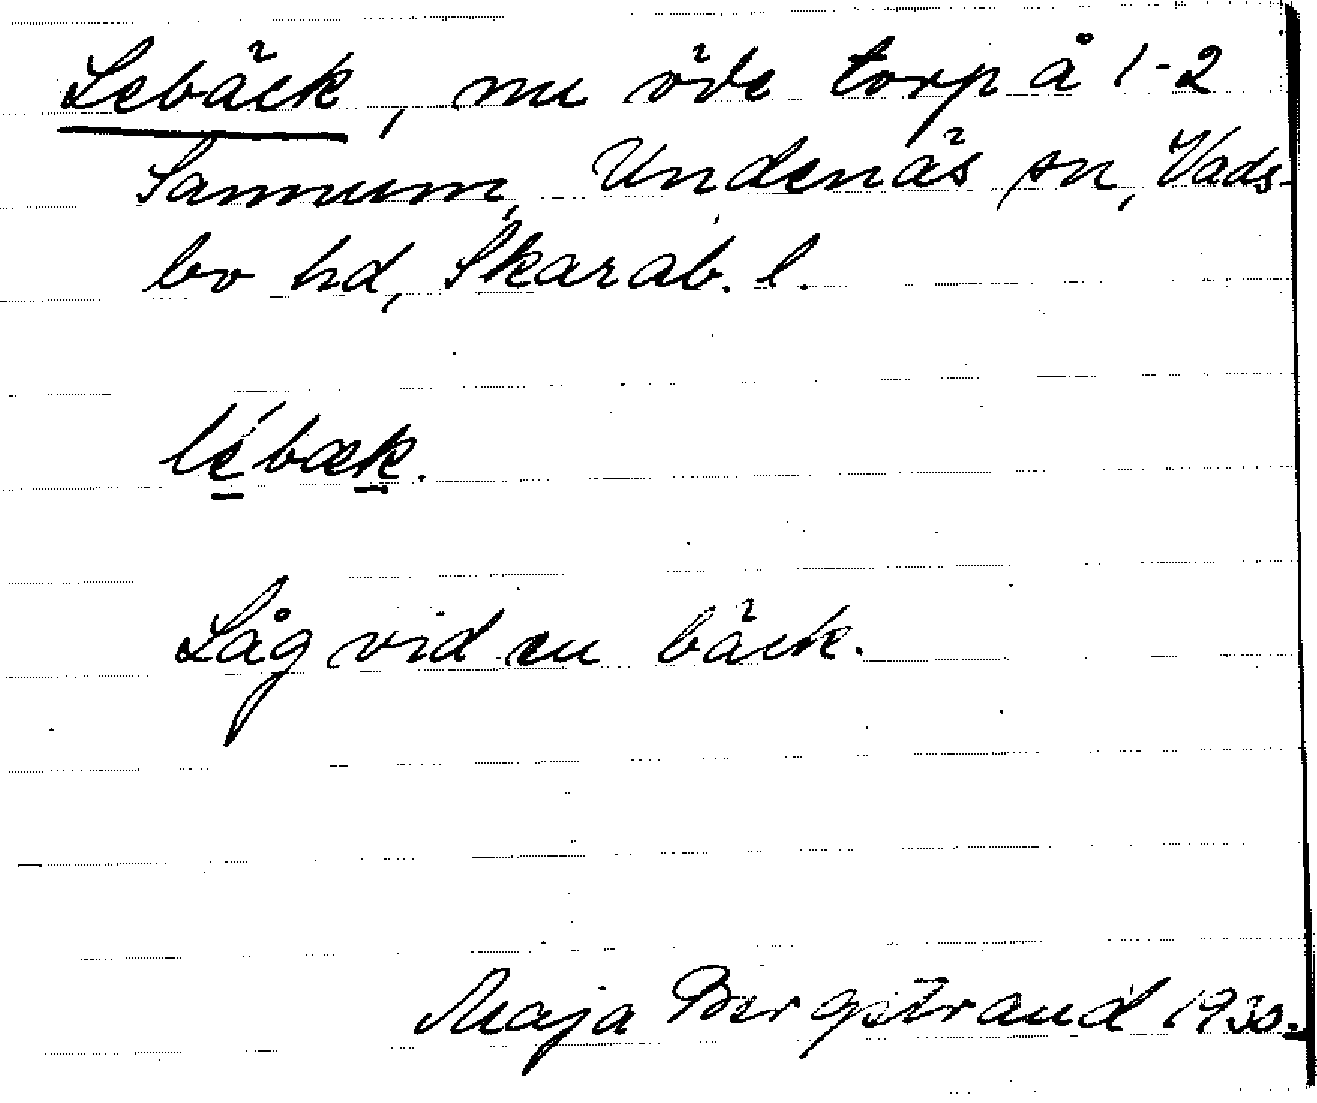 Lebäck, nu öde torp å 1-2
Sannum, Undenäs sn, Vads-
bo hd, Skarab. l.
lébæk.
Låg vid en bäck.
Maja Bergstrand 1930.